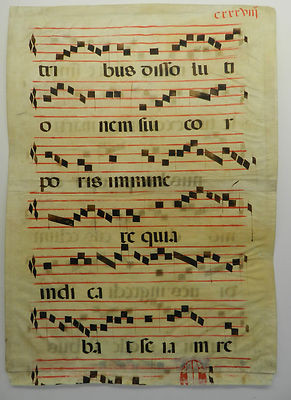 cxxxviij
tri bus disso lu ti
o nem sui co r
po ris immine
re quia
indi ca
ba t se ia m re